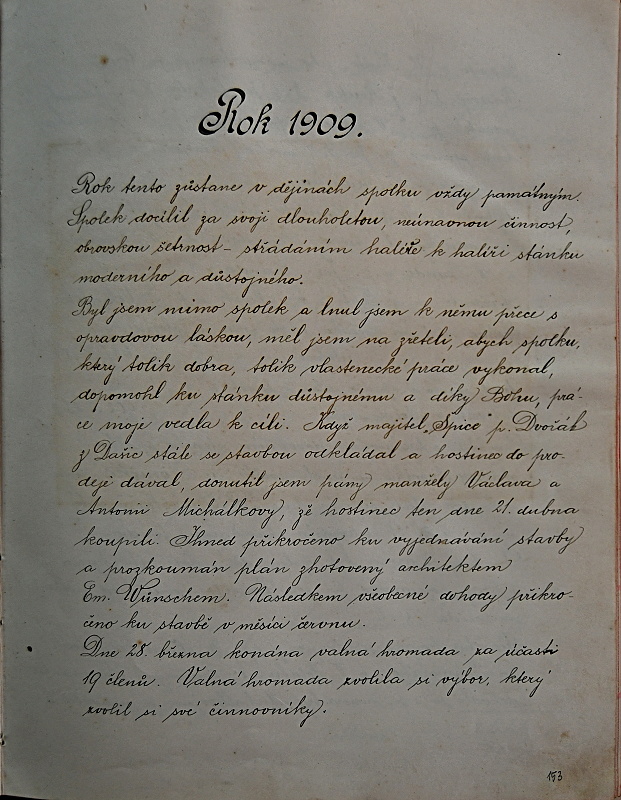 Rok 1909.
Rok tento zůstane v dějinách spolku vždy památným.
Spolek docílil za svoji dlouholetou, neúnavnou činnost,
obrovskou šetrnost – střádáním haléře k haléři stánku
moderního a důstojného.
Byl jsem mimo spolek a lnul jsem k němu přece s
opravdovou láskou, měl jsem na zřeteli, abych spolku,
který tolik dobra, tolik vlastenecké práce vykonal,
dopomohl ku stánku důstojnému a díky Bohu, prá-
ce moje vedla k cíli. Když majitel „Špice" p. Dvořák
z Dašic stále se stavbou odkládal a hostinec do pro-
deje dával, donutil jsem pány manžely Václava a
Antonii Michálkovy, že hostinec ten dne 21. dubna
koupili. Ihned přikročeno ku vyjednávání stavby
a prozkoumán plán zhotovený architektem
Em. Wünschem. Následkem všeobecné dohody přikro-
čeno ku stavbě v měsíci červnu.
Dne 28. března konána valná hromada za účasti
19 členů. Valná hromada zvolila si výbor, který
zvolil si své činnovníky.
153